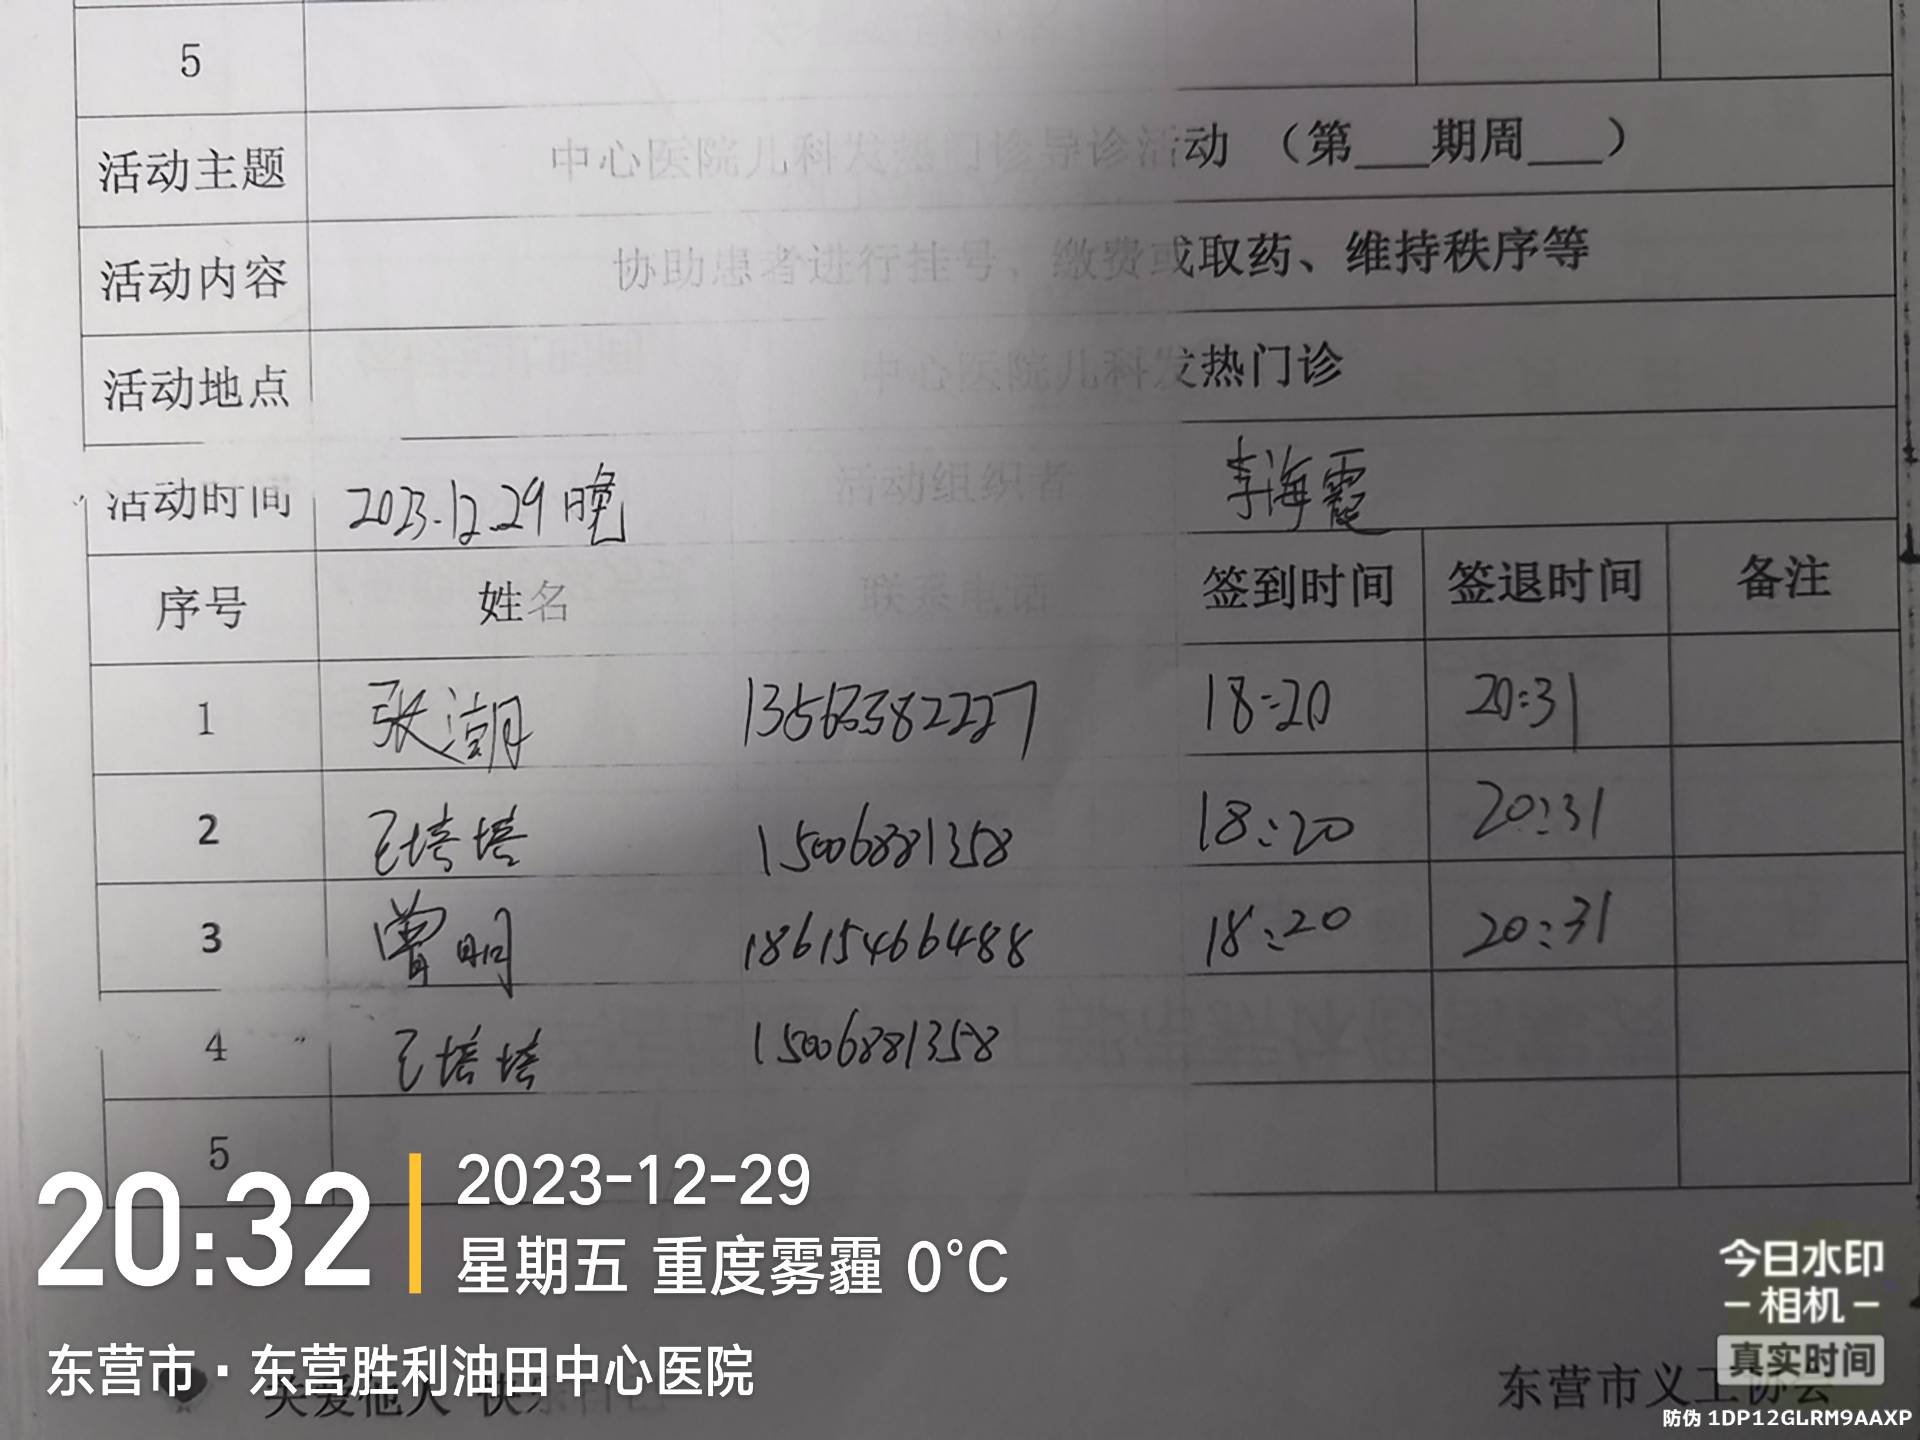 5
活动主题 中心医院儿科发热门诊导诊活动 （第___期周___）
活动内容 协助患者进行挂号、缴费或取药、维持秩序等
活动地点 中心医院儿科发热门诊
活动时间 2023.12.29晚 活动组织者 李海霞
序号 姓名 联系电话 签到时间 签退时间 备注
1 张潮 13563382227 18:20 20:31
2 王培培 15006881358 18:20 20:31
3 曾明 18615466488 18:20 20:31
4 王培培 15006881358
5
20:32
2023-12-29
星期五 重度雾霾 0°C
东营市·东营胜利油田中心医院
关爱他人 快乐自己
东营市义工协会
今日水印
相机
真实时间
防伪 1DP12GLRM9AAXP